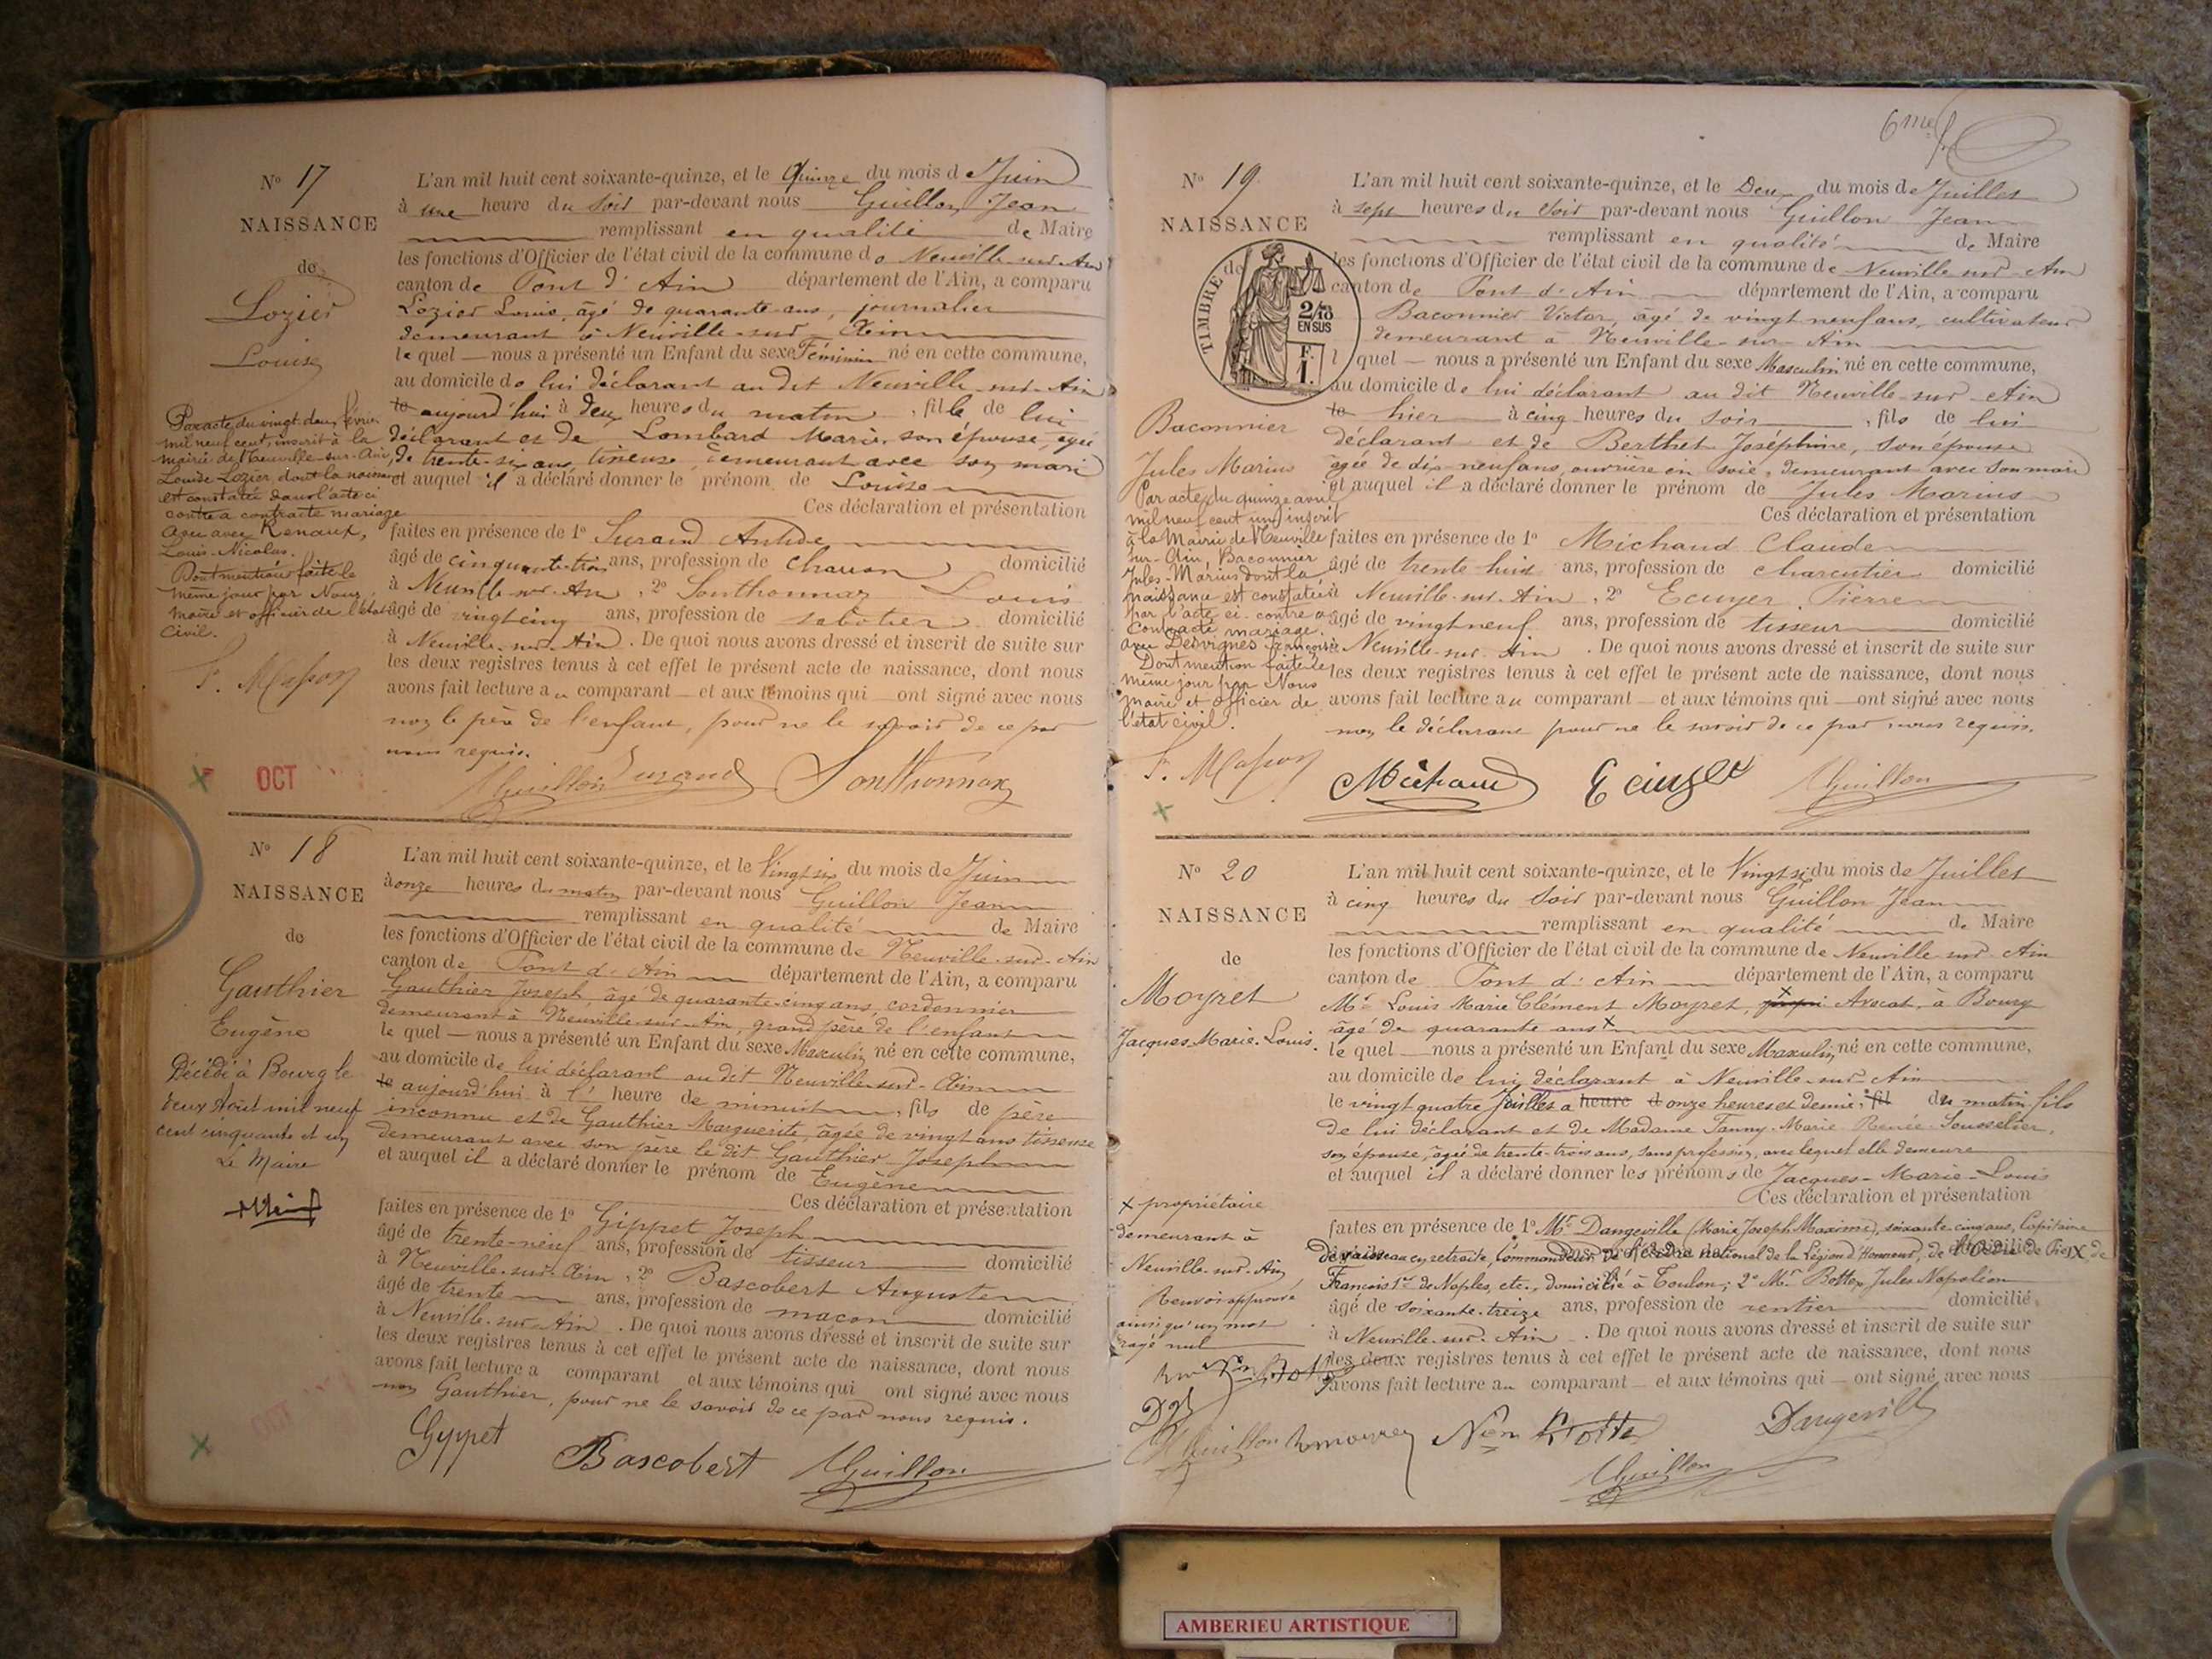 N° 17
NAISSANCE
de
Lozier
Louise
Par acte du vingt-deux février
mil neuf cent, inscrit à la
mairie de Neuville-sur-Ain,
Louise Lozier, dont la naissance
est constatée dans l'acte ci
contre a contracté mariage
avec Renaux,
Louis-Nicolas.
Dont mention faite le
même jour par Nous
Maire et officier de l'état
Civil.
OCT
L'an mil huit cent soixante-quinze, et le Quinze du mois de Juin
à une heure du Soir par-devant nous Guillon Jean
remplissant en qualité de Maire
les fonctions d'Officier de l'état civil de la commune de Neuville-sur-Ain
canton de Pont d'Ain département de l'Ain, a comparu
Lozier Louis, âgé de quarante ans, journalier
demeurant à Neuville-sur-Ain
lequel nous a présenté un Enfant du sexe Féminin né en cette commune,
au domicile de lui déclarant au dit Neuville-sur-Ain
le aujourd'hui à deux heures du matin, fille de lui
déclarant et de Lombard Marie, son épouse, âgée
de trente-six ans, tisseuse, demeurant avec son mari
et auquel il a déclaré donner le prénom de Louise
Ces déclaration et présentation
faites en présence de 1°
âgé de cinquante-trois ans, profession de charron domicilié
à Neuville-sur-Ain, 2° Southonnax Louis
âgé de vingt cinq ans, profession de sabotier domicilié
à Neuville-sur-Ain. De quoi nous avons dressé et inscrit de suite sur
les deux registres tenus à cet effet le présent acte de naissance, dont nous
avons fait lecture au comparant et aux témoins qui ont signé avec nous
non le père de l'enfant, pour ne le savoir de ce par
nous requis.
Guillon Durand Southonnax
N° 18
NAISSANCE
de
Gauthier
Eugène
Décédé à Bourg le
deux Août mil neuf
cent cinquante et un
Le Maire
OCT
L'an mil huit cent soixante-quinze, et le Vingt six du mois de Juin
à onze heures du matin par-devant nous Guillon Jean
remplissant en qualité de Maire
les fonctions d'Officier de l'état civil de la commune de Neuville-sur-Ain
canton de Pont d'Ain département de l'Ain, a comparu
Gauthier Joseph, âgé de quarante-cinq ans, cordonnier
demeurant à Neuville-sur-Ain, grand père de l'enfant
lequel nous a présenté un Enfant du sexe Masculin né en cette commune,
au domicile de lui déclarant au dit Neuville-sur-Ain
le aujourd'hui à l' heure de minuit, fils de père
inconnu et de Gauthier Marguerite, âgée de vingt ans tisseuse
demeurant avec son père le dit Gauthier Joseph
et auquel il a déclaré donner le prénom de Eugène
Ces déclaration et présentation
faites en présence de 1° Gippet Joseph
âgé de trente-neuf ans, profession de tisseur domicilié
à Neuville-sur-Ain, 2° Bascobert Auguste
âgé de trente ans, profession de maçon domicilié
à Neuville-sur-Ain. De quoi nous avons dressé et inscrit de suite sur
les deux registres tenus à cet effet le présent acte de naissance, dont nous
avons fait lecture a comparant et aux témoins qui ont signé avec nous
non Gauthier, pour ne le savoir de ce par nous requis.
Gyppet Bascobert Guillon
6me f.
N° 19
NAISSANCE
de
TIMBRE
2/10
EN SUS
F.
1.
Baconnier
Jules Marius
Par acte du quinze avril
mil neuf cent un, inscrit
à la Mairie de Neuville
sur-Ain, Baconnier
Jules-Marius dont la
naissance est constatée
par l'acte ci-contre a
contracté mariage
avec Desvignes Françoise
Dont mention faite le
même jour par Nous
maire et officier de
l'état civil.
L'an mil huit cent soixante-quinze, et le Deux du mois de Juillet
à sept heures du Soir par-devant nous Guillon Jean
remplissant en qualité de Maire
les fonctions d'Officier de l'état civil de la commune de Neuville-sur-Ain
canton de Pont d'Ain département de l'Ain, a comparu
Baconnier Victor, âgé de vingt neuf ans, cultivateur
demeurant à Neuville-sur-Ain
lquel nous a présenté un Enfant du sexe Masculin né en cette commune,
au domicile de lui déclarant au dit Neuville-sur-Ain
le hier à cinq heures du soir, fils de lui
déclarant et de Berthet Joséphine, son épouse
âgée de dix-neuf ans, ouvrière en soie, demeurant avec son mari
et auquel il a déclaré donner le prénom de Jules Marius
Ces déclaration et présentation
faites en présence de 1° Michaud Claude
âgé de trente huit ans, profession de charcutier domicilié
à Neuville-sur-Ain, 2° Ecuyer Pierre
âgé de vingt neuf ans, profession de tisseur domicilié
à Neuville-sur-Ain. De quoi nous avons dressé et inscrit de suite sur
les deux registres tenus à cet effet le présent acte de naissance, dont nous
avons fait lecture au comparant et aux témoins qui ont signé avec nous
non le déclarant pour ne le savoir de ce par nous requis.
Michaud Ecuyer Guillon
N° 20
NAISSANCE
de
Moyret
Jacques Marie-Louis.
x propriétaire
demeurant à
Neuville-sur-Ain
Renvoi approuvé
ainsi qu'un mot
rayé nul
L'an mil huit cent soixante-quinze, et le Vingt six du mois de Juillet
à cinq heures du Soir par-devant nous Guillon Jean
remplissant en qualité de Maire
les fonctions d'Officier de l'état civil de la commune de Neuville-sur-Ain
canton de Pont d'Ain département de l'Ain, a comparu
Mr Louis Marie Clément Moyret, x Avocat, à Bourg
âgé de quarante ans x
lequel nous a présenté un Enfant du sexe Masculin, né en cette commune,
au domicile de lui déclarant à Neuville-sur-Ain
le vingt quatre Juillet à heure d onze heures et demie, fil du matin fils
de lui déclarant et de Madame Fanny-Marie Renée Sousselier,
son épouse, âgée de trente-trois ans, sans profession, avec lequel elle demeure
et auquel il a déclaré donner les prénoms de Jacques-Marie-Louis
Ces déclaration et présentation
faites en présence de 1° Mr Dangeville (Marie Joseph Maxime), soixante-cinq ans, Capitaine
de vaisseau en retraite, Commandeur de l'Ordre national de la Légion d'Honneur, de l'Ordre de Pie IX, de
François 1er de Naples, etc., domicilié à Toulon; 2° Mr Bottex Jules Napoléon
âgé de soixante-treize ans, profession de rentier domicilié
à Neuville-sur-Ain. De quoi nous avons dressé et inscrit de suite sur
les deux registres tenus à cet effet le présent acte de naissance, dont nous
avons fait lecture au comparant et aux témoins qui ont signé avec nous
Guillon Dangeville
Guillon
AMBERIEU ARTISTIQUE